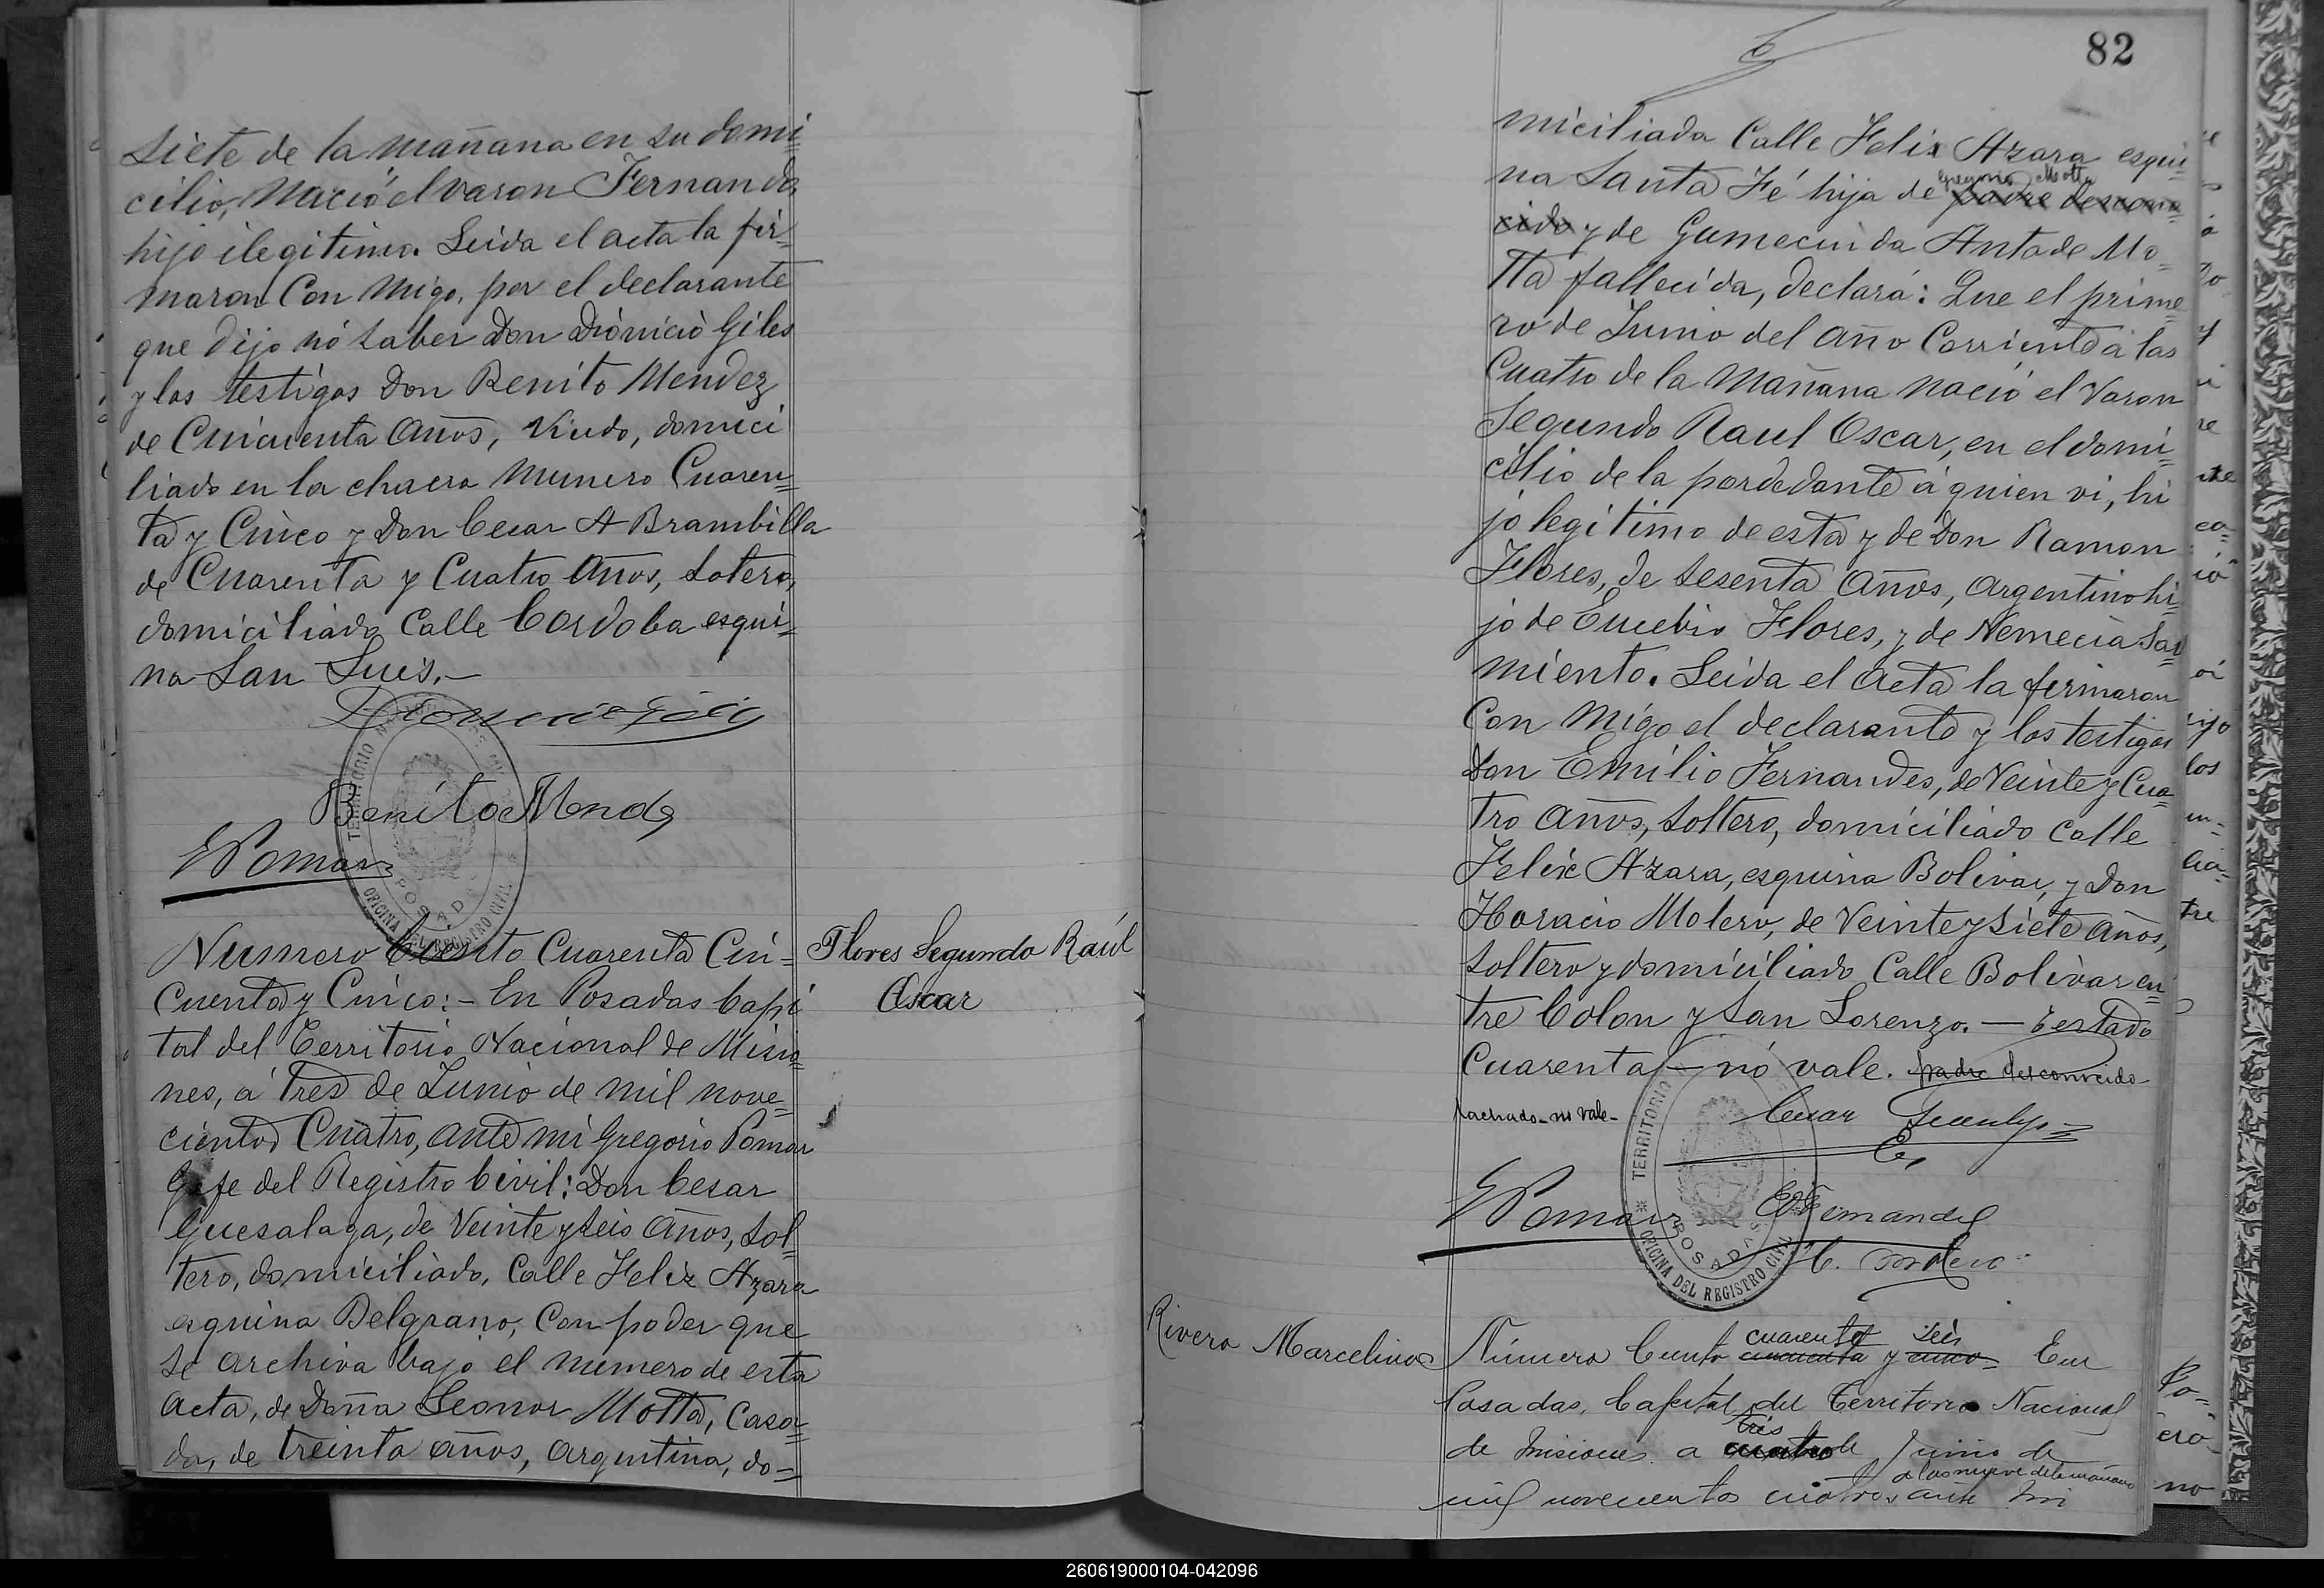 siete de la mañana en su domi=
cilio, Nació el varon Fernando,
hijo ilegitimo. Leida el acta la fir=
maron Con migo, por el declarante
que dijo nó saber Don Dionicio Giles
y los testigos Don Benito Mendez
de Cincuenta Años, Viudo, domici
liado en la chacra Numero Cuaren=
ta y Cinco y Don Cesar A Brambilla
de Cuarenta y Cuatro Años, Soltero,
domiciliado Calle Cordoba esqui=
na San Luis.—
Dionicio Giles
Benito Mendez
GPomar
TERRITORIO
POSADAS
OFICINA DEL REGISTRO CIVIL
Numero Ciento Cuarenta Cin=
Cuenta y Cinco:— En Posadas Capi
tal del Territorio Nacional de Misio=
nes, á Tres de Junio de mil nove=
cientos Cuatro, ante mi Gregorio Pomar
Gefe del Registro Civil: Don Cesar
Guesalaga, de Veinte y seis Años, Sol=
tero, domiciliado, Calle Felix Azara
esquina Belgrano, Con poder que
se archiva bajo el numero de esta
acta, de Doña Leonor Motta, Casa=
da, de treinta años, Argentina, do=
Flores Segundo Raúl
Oscar
82
miciliada Calle Felix Azara esqui=
na Santa Fé hija de padre descono=
Gregorio Motta
cido y de Gumecinda Anta de Mo=
tta fallecida, declara: Que el prime=
ro de Junio del Año Corriente á las
Cuatro de la Mañana nació el Varon
Segundo Raul Oscar, en el domi=
cilio de la poderdante á quien vi, hi
jo legitimo de esta y de Don Ramon
Flores, de sesenta Años, Argentino hi=
jo de Eucebio Flores, y de Nemecia Sar=
miento. Leida el Acta la firmaron
Con migo el declarante y los testigos
Don Emilio Fernandes, de Veinte y Cua=
tro Años, Soltero, domiciliado Calle
Felix Azara, esquina Bolivar, y Don
Horacio Molero, de Veinte y Siete Años,
Soltero y domiciliado Calle Bolivar en=
tre Colon y San Lorenzo. — Testado
Cuarenta — nó vale. padre desconocido
tachado — no vale —
Cesar
GPomar
EFernandez
TERRITORIO
POSADAS
OFICINA DEL REGISTRO CIVIL
Rivero Marcelino
cuarenta seis
Número Ciento cincuenta y cinco = En
Posadas, Capital del Territorio Nacional
tres
de Misiones a cuatro de Junio de
a las nueve de la mañana
mil novecientos cuatro, ante mi
260619000104-042096